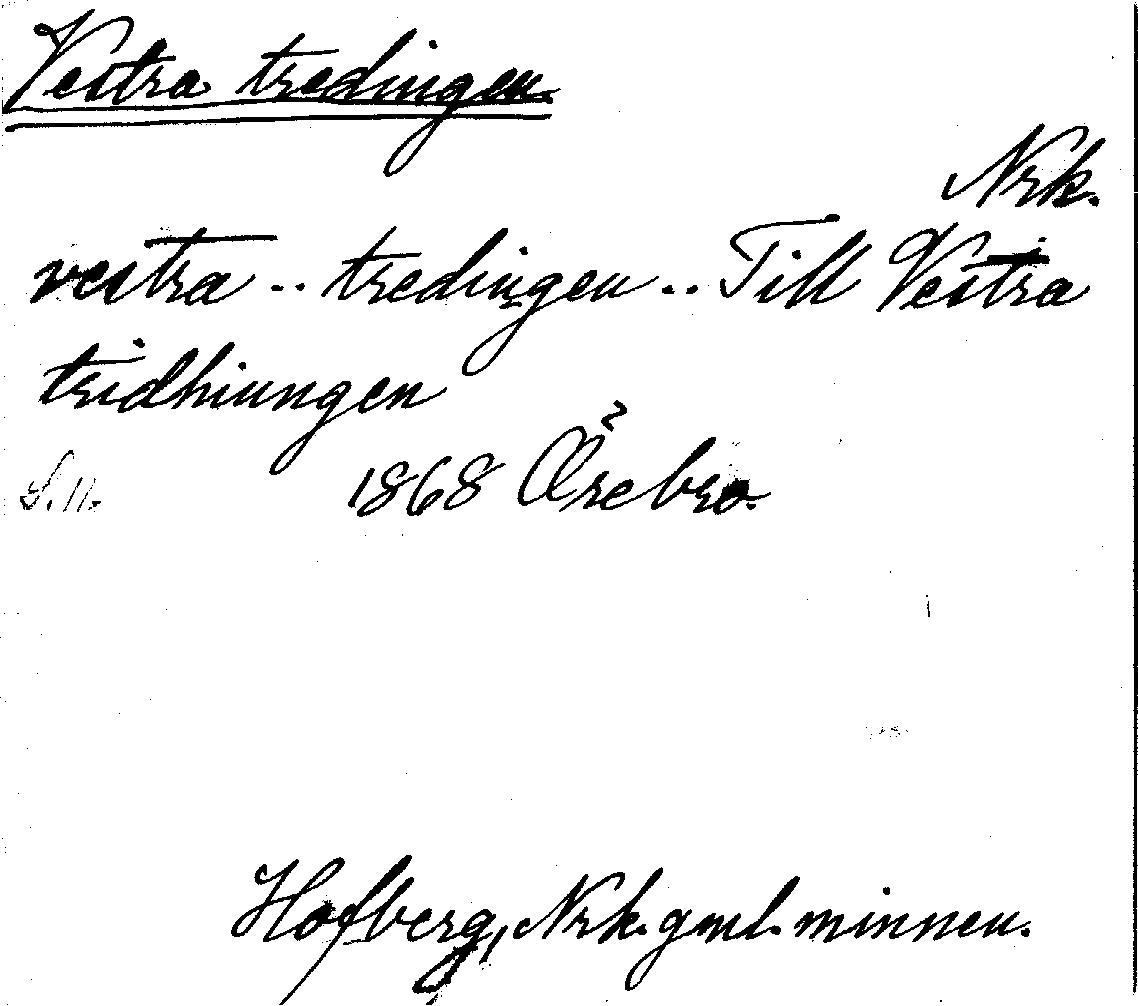 Vestra tredingen
Nrk.
vestra .. tredingen .. Till Vestra
tridhiungen
S. 11. 1868 Örebro.
Hofberg, Nrk. gml. minnen.